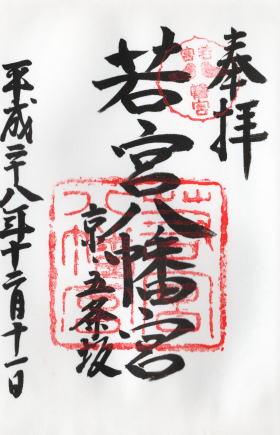 奉拝
若宮八幡宮
京、五条坂
平成二十八年十二月十一日